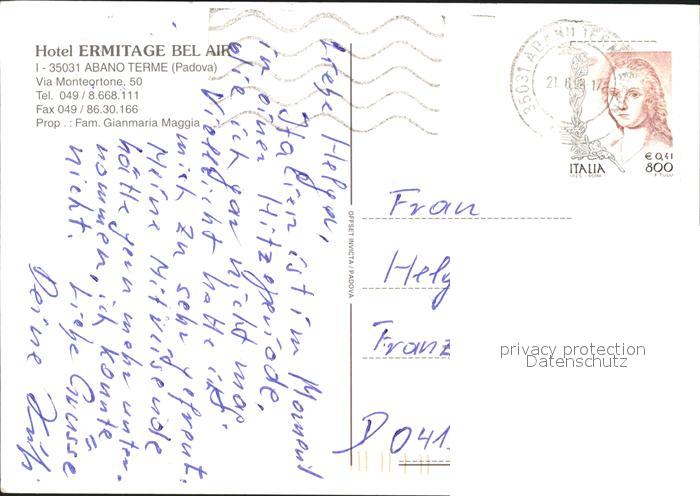 Hotel ERMITAGE BEL AIR
I - 35031 ABANO TERME (Padova)
Via Monteortone, 50
Tel. 049 / 8.668.111
Fax 049 / 86.30.166
Prop .: Fam. Gianmaria Maggia
Liebe Helga,
Italien ist im Moment
in einer Hitzeperiode,
wie ich gar nicht mag.
Vielleicht hatte ich
mich zu sehr gefreut.
Meine Mitreisende
hätte gern mehr unter-
nommen, ich konnte
nicht. Liebe Grüsse
Deine
OFFSET INVICTA / PADOVA
35031 ABANO TERME
21.6.
ITALIA
€ 0,41
800
Frau
Helg
Franz
D 041
privacy protection
Datenschutz